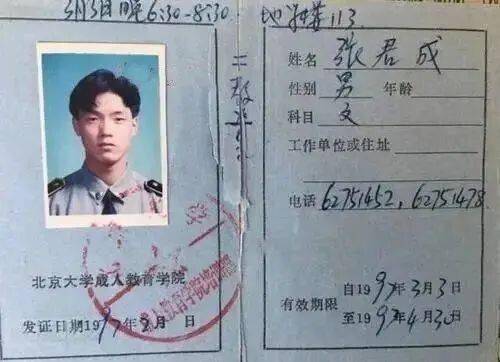 3月3日晚6:30-8:30. 地学楼113
北京大学成人教育学院
发证日期1997年3月 日
姓名 张君成
性别 男 年龄
科目 文
工作单位或住址
电话 62751452, 62751478
有效期限
自1997年3月3日
至1997年4月30日